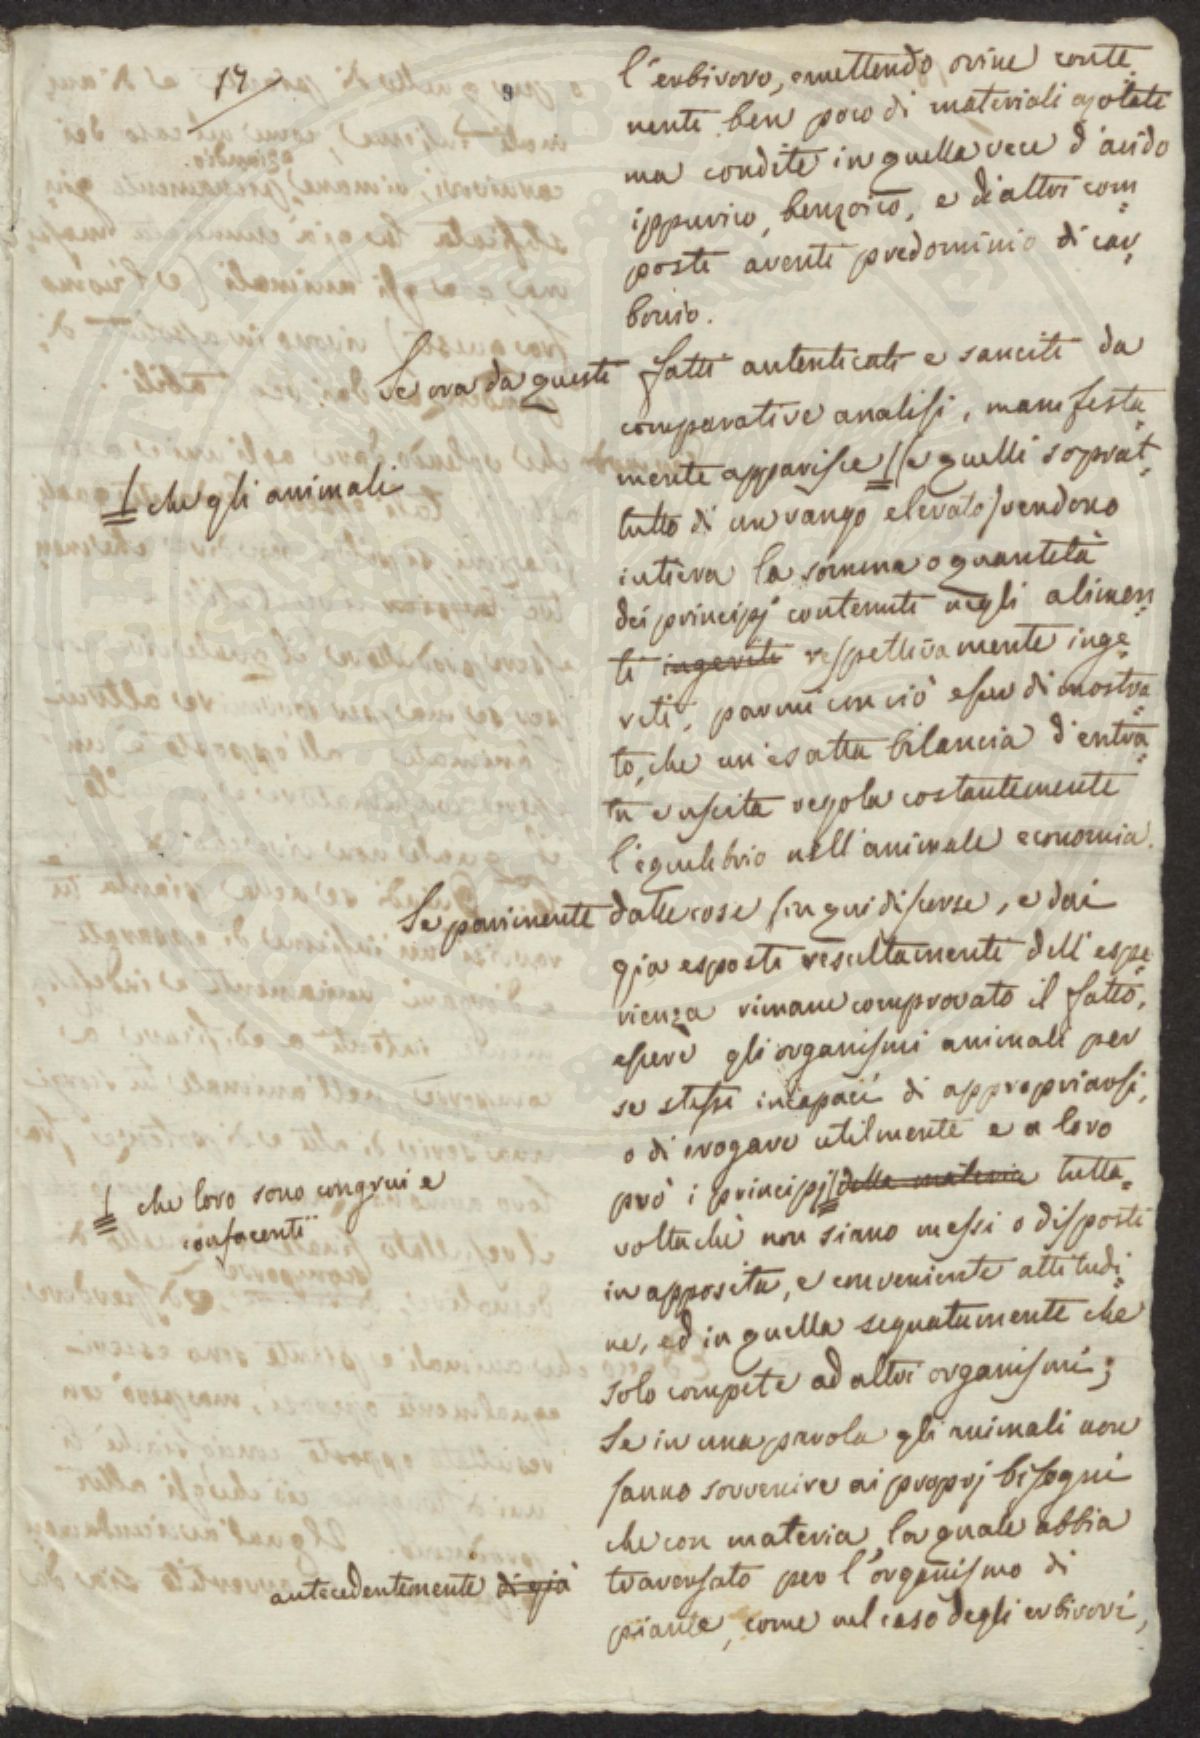 17
9
l'erbivoro, emettendo orine conte=
nenti ben poco di materiali azotati
ma condite in quella vece d'acido
ippurico, benzoico, e di altri com=
posti aventi predominio di car=
bonio.
Se ora da questi fatti autenticati e sanciti da
comparative analisi, manifesta=
mente apparisce // (e quelli soprat=
// che gli animali
tutto di un rango elevato) rendono
intiera la somma o quantità
dei principj contenuti negli alimen=
ti ingeriti respettivamente inge=
riti, parmi con ciò esser dimostra=
to, che un'esatta bilancia d'entra=
ta e uscita regola costantemente
l'equilibrio nell'animale economia.
Se parimente dalle cose fin qui discorse, e dai
già esposti resultamenti dell'espe=
rienza rimane comprovato il fatto,
essere gli organismi animali per
se stessi incapaci di appropriarsi,
o di erogare utilmente e a loro
prò i principj // della materia tutta=
// che loro sono congrui e
confacenti
voltachè non siano messi o disposti
in apposita, e conveniente attitudi=
ne, ed in quella segnatamente che
solo compete ad altri organismi;
Se in una parola gli animali non
sanno sovvenire ai proprj bisogni
che con materia, la quale abbia
antecedentemente di già traversato per l'organismo di
piante, come nel caso degli erbivori,